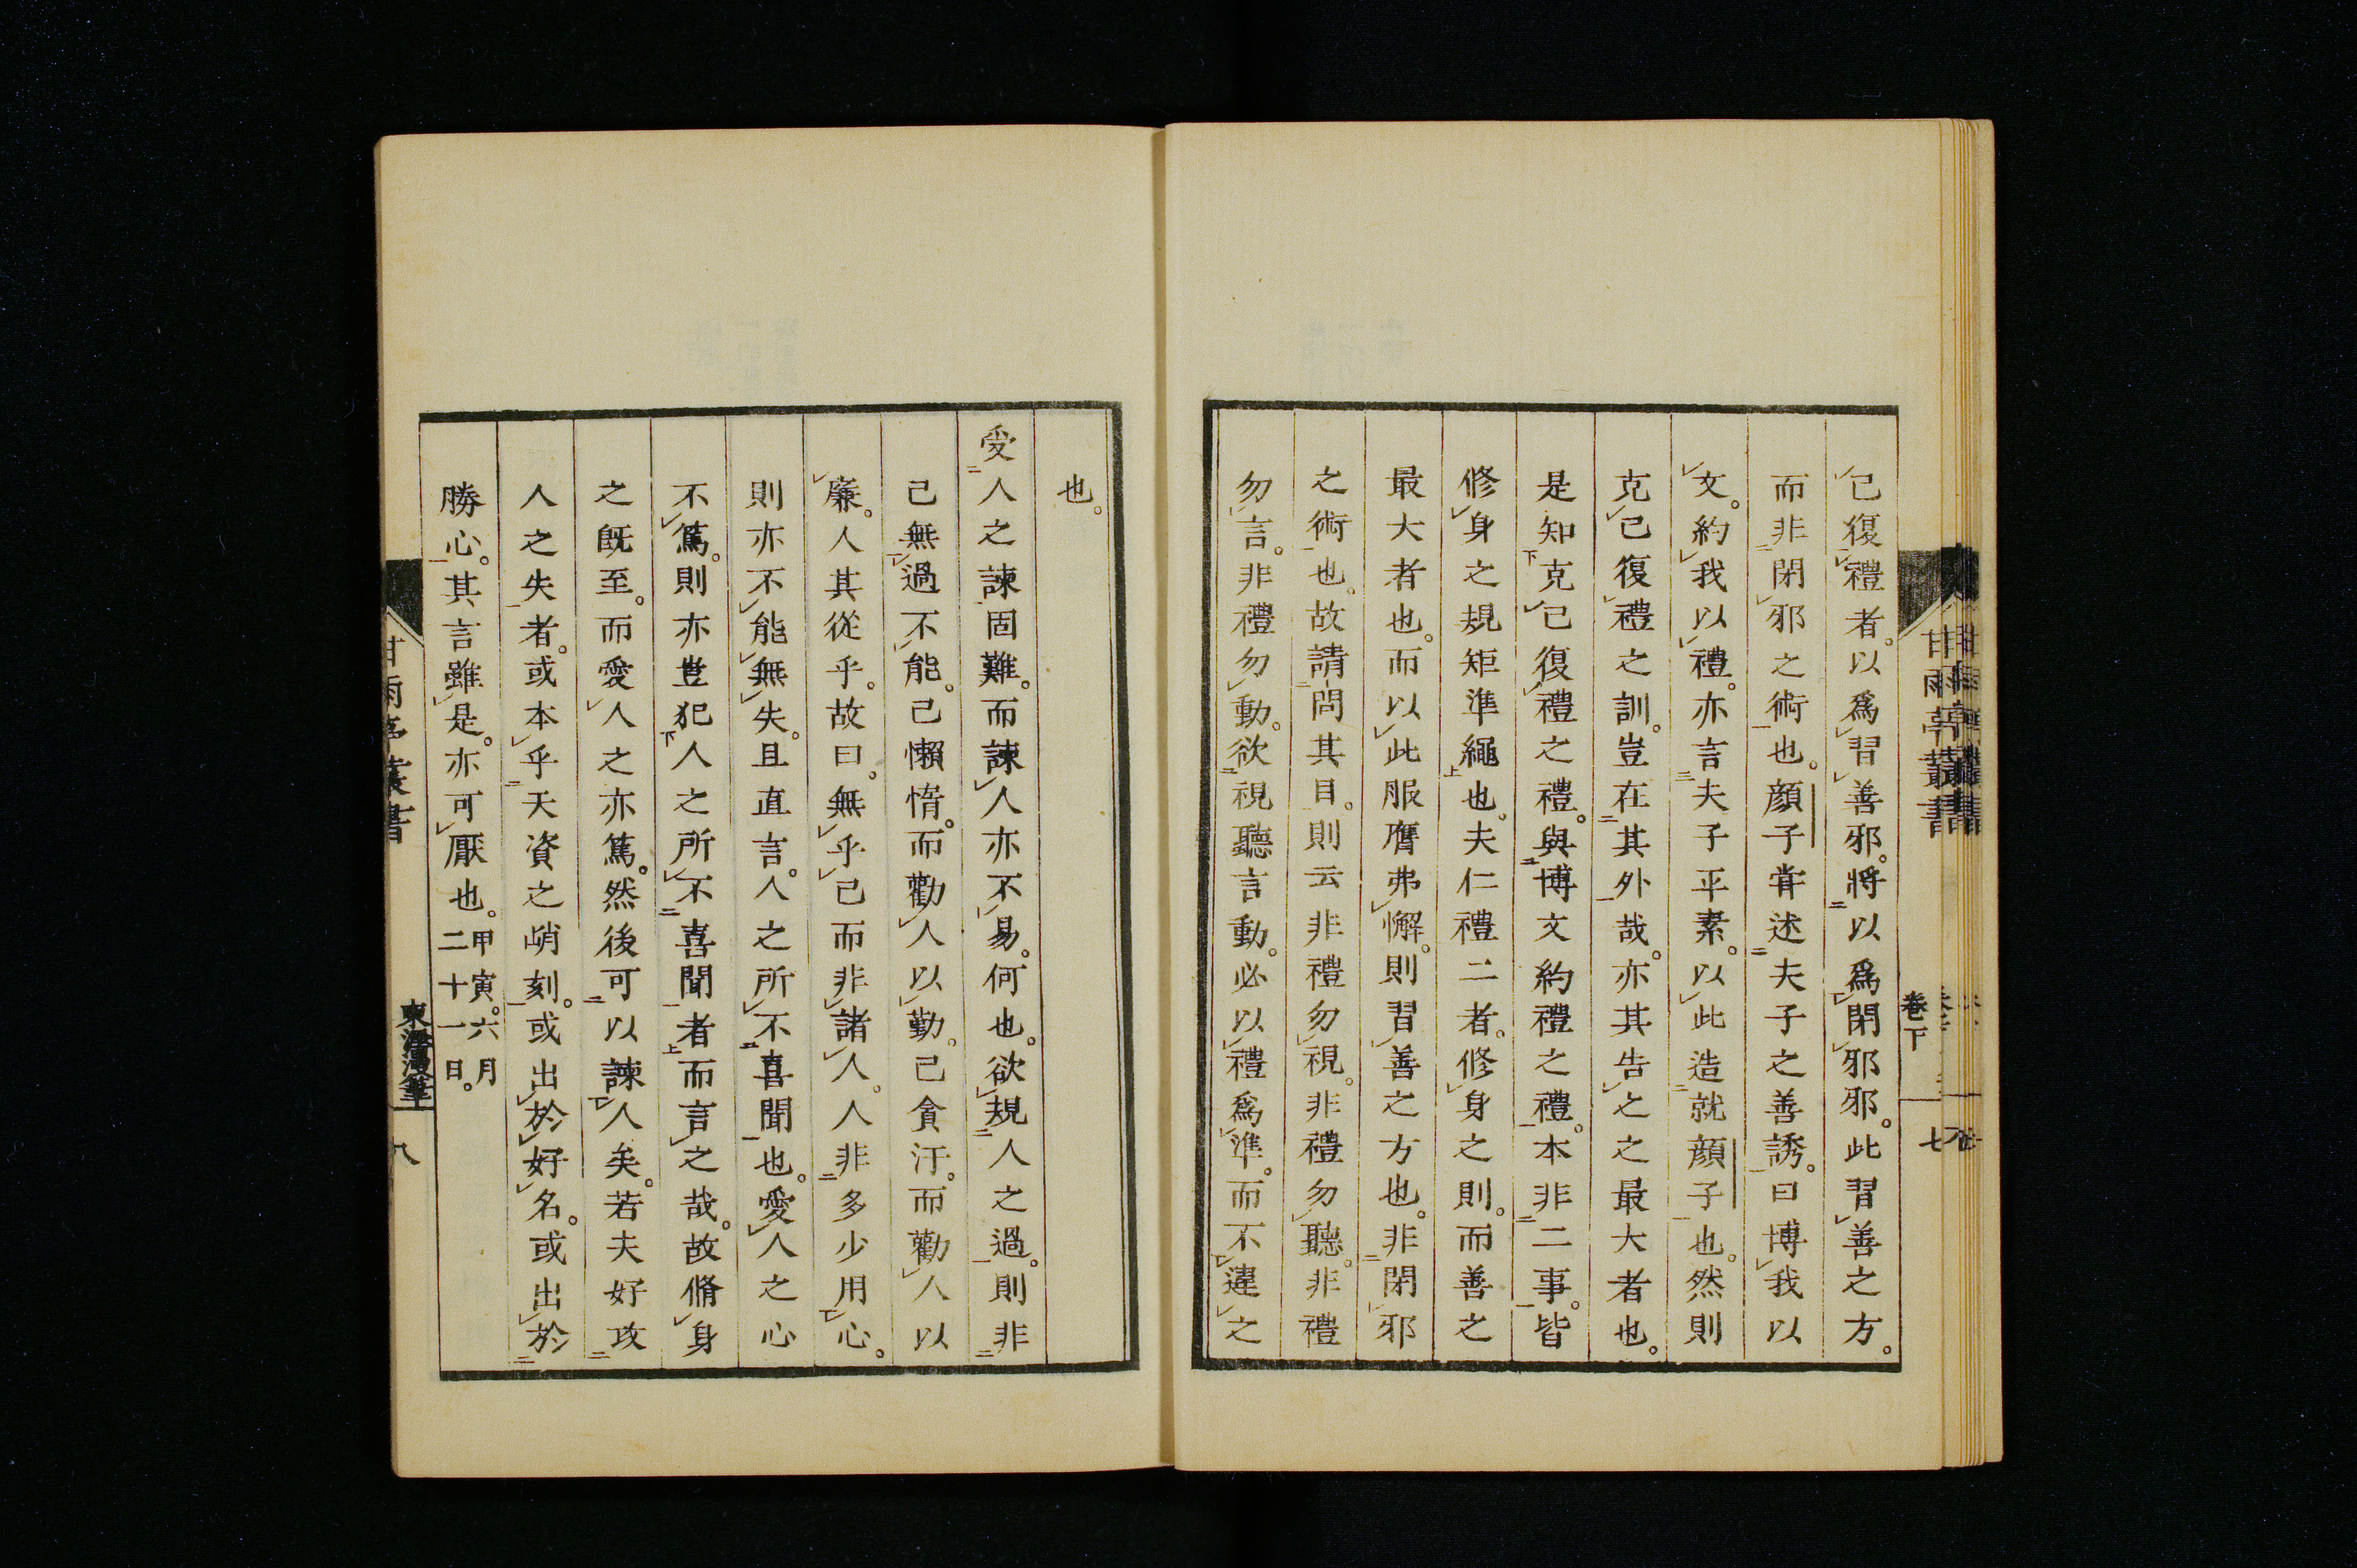 己復禮者。以爲習善邪。將以爲閑邪邪。此習善之方。
而非閑邪之術也。顔子甞述夫子之善誘。曰博我以
文。約我以禮。亦言夫子平素。以此造就顔子也。然則
克己復禮之訓。豈在其外哉。亦其告之之最大者也。
是知克己復禮之禮。與博文約禮之禮。本非二事。皆
修身之規矩準繩也。夫仁禮二者。修身之則。而善之
最大者也。而以此服膺弗懈。則習善之方也。非閑邪
之術也。故請問其目。則云非禮勿視。非禮勿聽。非禮
勿言。非禮勿動。欲視聽言動。必以禮爲準。而不違之
甘雨亭叢書
卷下
七
也。
受人之諫固難。而諫人亦不易。何也。欲規人之過。則非
己無過不能。己懶惰。而勸人以勤。己貪汙。而勸人以
廉。人其從乎。故曰。無乎己而非諸人。人非多少用心。
則亦不能無失。且直言。人之所不喜聞也。愛人之心
不篤。則亦豈犯人之所不喜聞者而言之哉。故脩身
之既至。而愛人之亦篤。然後可以諫人矣。若夫好攻
人之失者。或本乎天資之峭刻。或出於好名。或出於
勝心。其言雖是。亦可厭也。甲寅。六月二十一日。
甘雨亭叢書
東潭漫筆
八